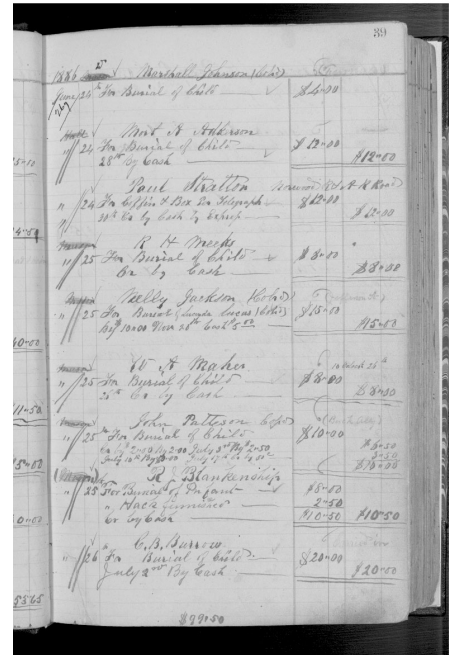 39
1886 Marshall Johnson (Cold)
June 24th For Burial of Child $4-00
Mort A Adkerson
" 24 For Burial of Child $12-00
28th By Cash $12-00
Paul Stratton
" 24 For Coffin & Box Per Telegraph $12-00
30th Cr by Cash by Express $12-00
R H Meeks
" 25 For Burial of Child $8-00
Cr by Cash $8-00
Nelly Jackson (Cold)
" 25 For Burial of Lucas (Cold) $15-00
By 10-00 28th Cash 5 00 $15-00
W A Maher
" 25 For Burial of Child $8-00
25th Cr by Cash $8-00
John Patteson
" 25th For Burial of Child $10-00
2-50 2-00 July 3rd By 2-50 $6-50
July 10th By July 17th 3-50
$10-00
R J Blankenship
" 25 For Burial of Infant $8-00
" Hack furnished 2-50
Cr by Cash $10-50 $10-50
C. B. Burrow
" 26 For Burial of Child $20-00
July 2nd By Cash $20-00
$99-50
5-50
4-50
40-00
11-50
5-00
0-00
5565